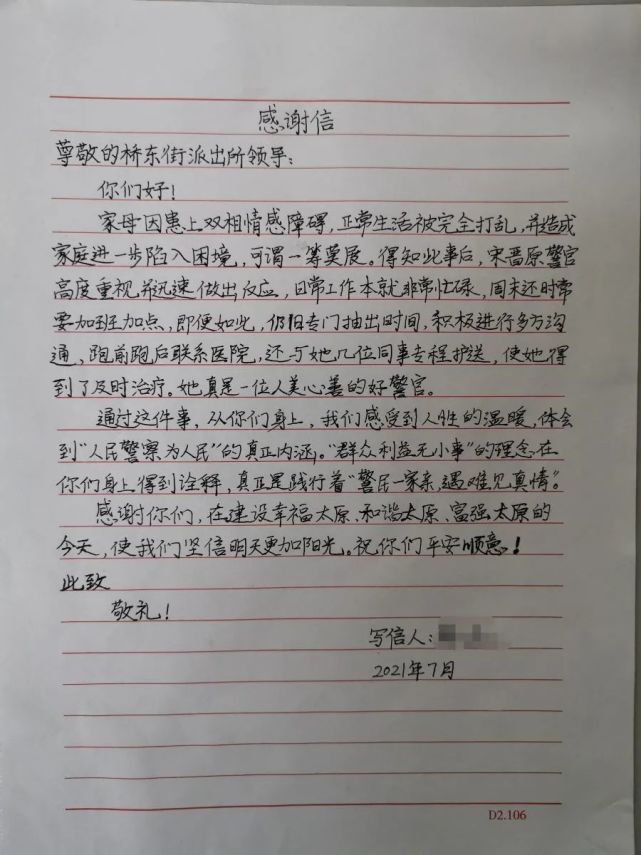 感谢信
尊敬的桥东街派出所领导:
你们好!
家母因患上双相情感障碍,正常生活被完全打乱,并造成
家庭进一步陷入困境,可谓一筹莫展。得知此事后,宋晋原警官
高度重视并迅速做出反应,日常工作本就非常忙碌,周末还时常
要加班加点,即便如此,仍旧专门抽出时间,积极进行多方沟
通,跑前跑后联系医院,还与她几位同事专程护送,使她得
到了及时治疗。她真是一位人美心善的好警官。
通过这件事,从你们身上,我们感受到人性的温暖,体会
到“人民警察为人民”的真正内涵。“群众利益无小事”的理念在
你们身上得到诠释,真正是践行着“警民一家亲,遇难见真情”。
感谢你们,在建设幸福太原、和谐太原、富强太原的
今天,使我们坚信明天更加阳光。祝你们平安顺意!
此致
敬礼!
写信人:
2021年7月
D2.106